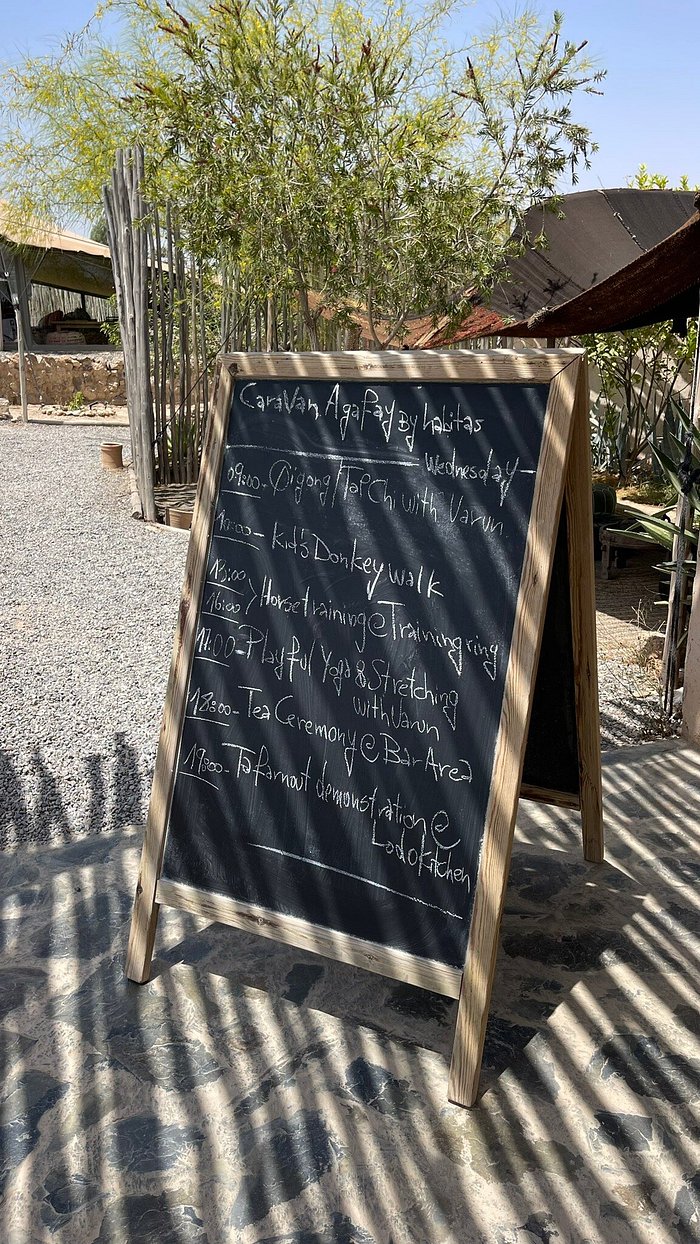 Caravan Agafay By habitas
Wednesday
09:00 - Qigong/Tai Chi with Varun
10:00 - Kid's Donkey walk
15:00
16:00 > Horsetraining @ Training ring
17:00 - Playful Yoga & Stretching
with Varun
18:00 - Tea Ceremony @ Bar Area
19:00 - Tafarnout demonstration @
Lodo Kitchen